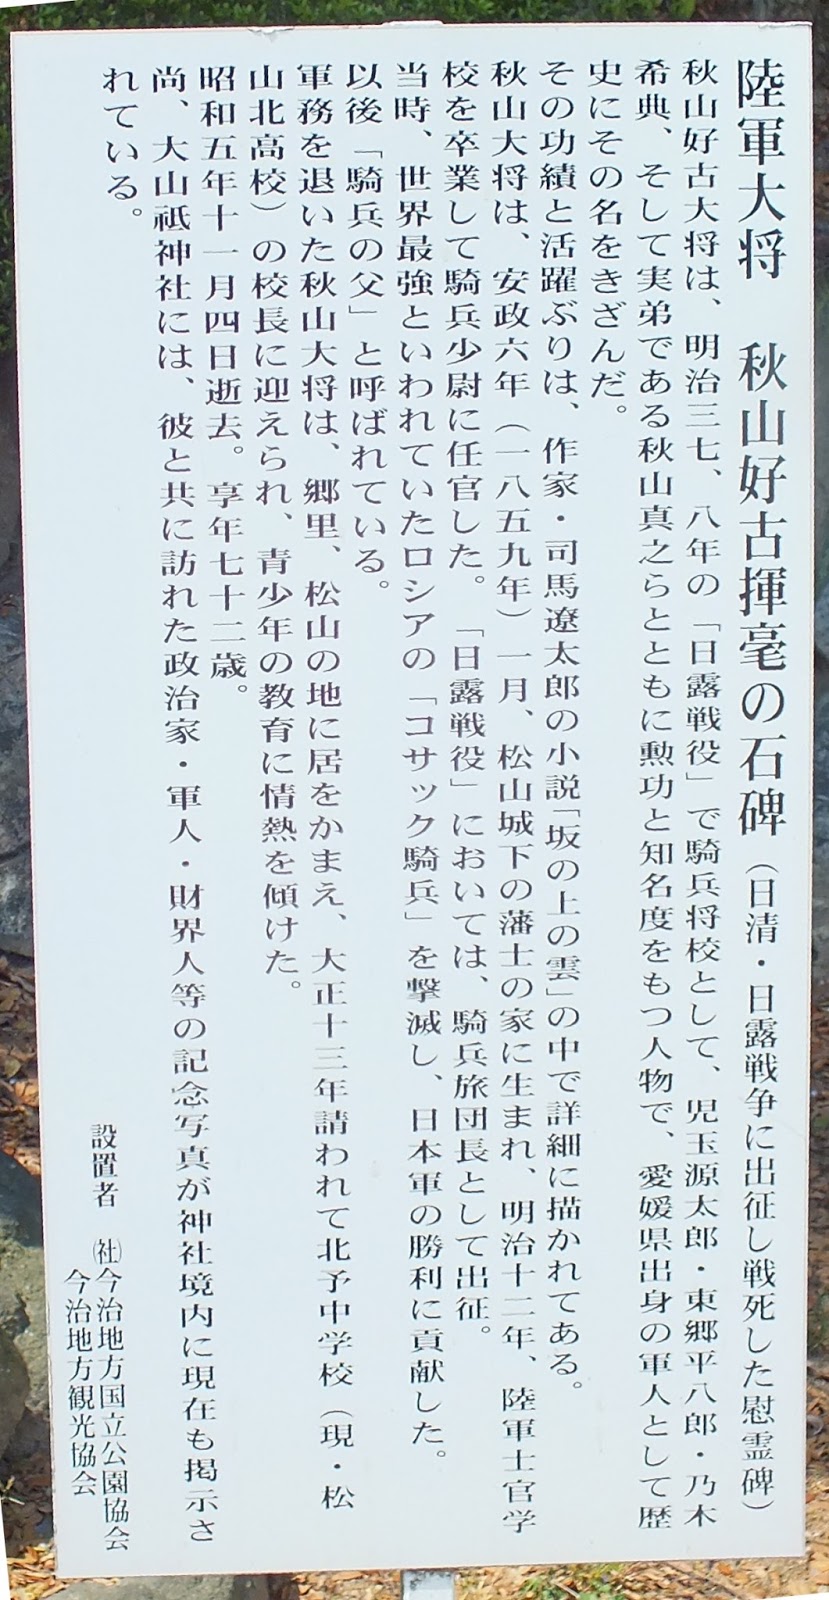 陸軍大将　秋山好古揮毫の石碑（日清・日露戦争に出征し戦死した慰霊碑）
秋山好古大将は、明治三七、八年の「日露戦役」で騎兵将校として、児玉源太郎・東郷平八郎・乃木
希典、そして実弟である秋山真之らとともに勲功と知名度をもつ人物で、愛媛県出身の軍人として歴
史にその名をきざんだ。
その功績と活躍ぶりは、作家・司馬遼太郎の小説「坂の上の雲」の中で詳細に描かれてある。
秋山大将は、安政六年（一八五九年）一月、松山城下の藩士の家に生まれ、明治十二年、陸軍士官学
校を卒業して騎兵少尉に任官した。「日露戦役」においては、騎兵旅団長として出征。
当時、世界最強といわれていたロシアの「コサック騎兵」を撃滅し、日本軍の勝利に貢献した。
以後「騎兵の父」と呼ばれている。
軍務を退いた秋山大将は、郷里、松山の地に居をかまえ、大正十三年請われて北予中学校（現・松
山北高校）の校長に迎えられ、青少年の教育に情熱を傾けた。
昭和五年十一月四日逝去。享年七十二歳。
尚、大山祇神社には、彼と共に訪れた政治家・軍人・財界人等の記念写真が神社境内に現在も掲示さ
れている。
設置者　㈳今治地方国立公園協会
今治地方観光協会